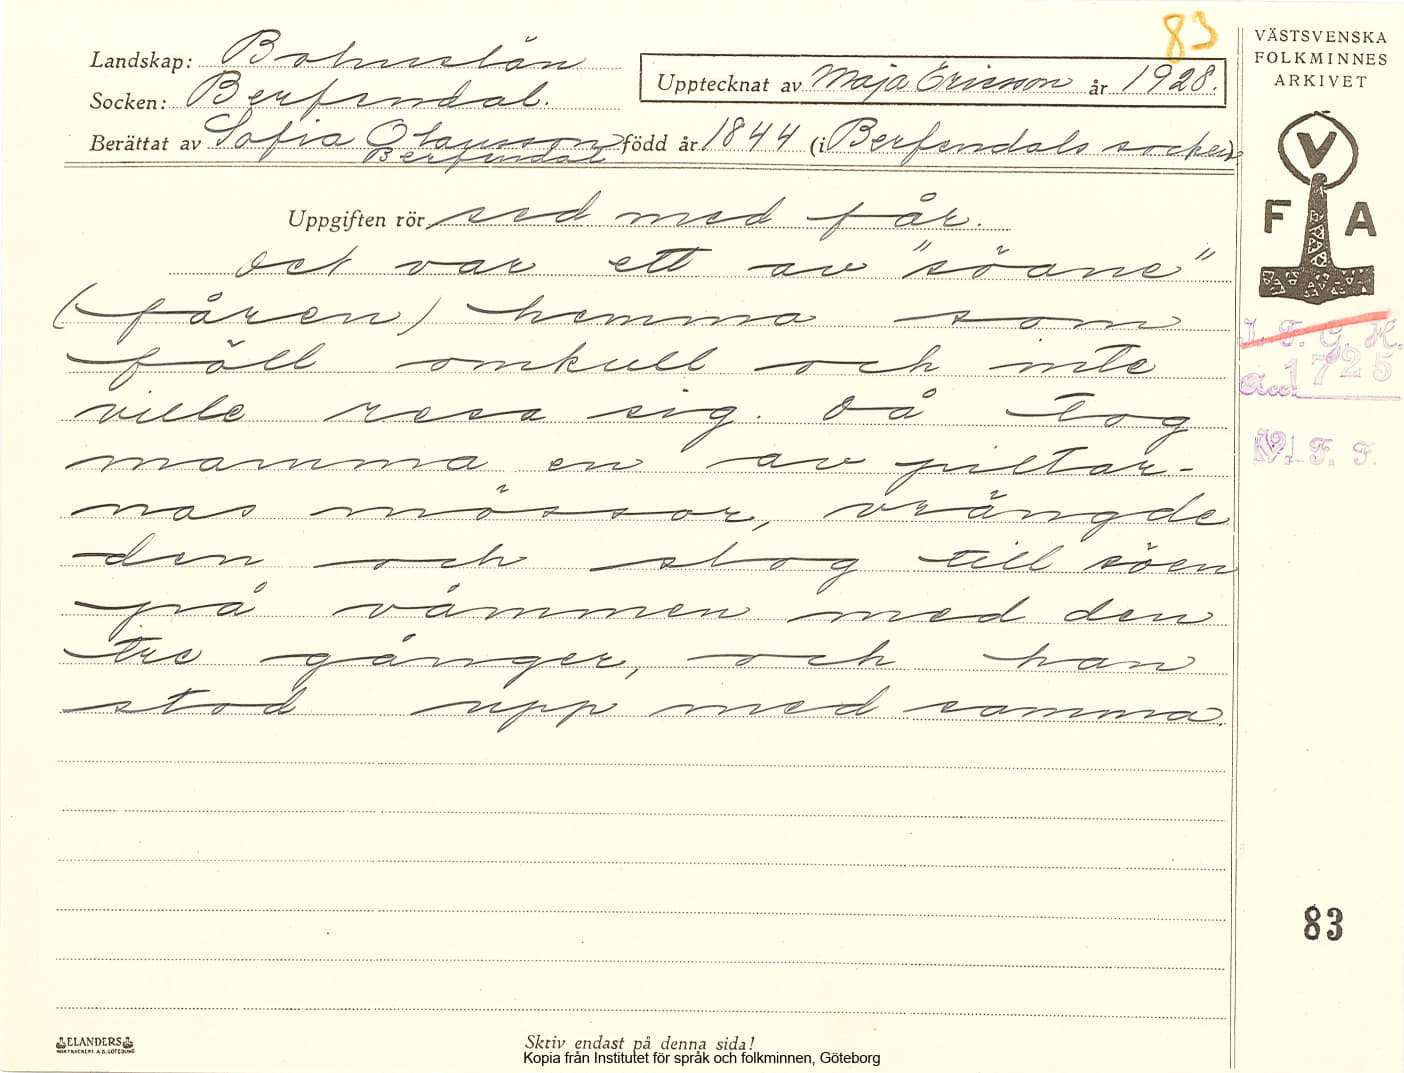 83
Landskap: Bohuslän
Socken: Berfendal.
Upptecknat av Maja Ericsson år 1928.
Berättat av Sofia Olausson född år 1844 (i Berfendals socken)
Berfendal
Uppgiften rör sed med får.
Det var ett av "söane"
(fåren) hemma som
föll omkull och inte
ville resa sig. Då tog
mamma en av piltar-
nas mössor, vrängde
den och slog till söen
på våmmen med den
tre gånger, och han
stod upp med samma.
VÄSTSVENSKA
FOLKMINNES
ARKIVET
V
F A
I. F. G. H.
Acc. 1725
V. F. F.
83
ELANDERS
BOKTRYCKERI A.B. GÖTEBORG
Skriv endast på denna sida!
Kopia från Institutet för språk och folkminnen, Göteborg